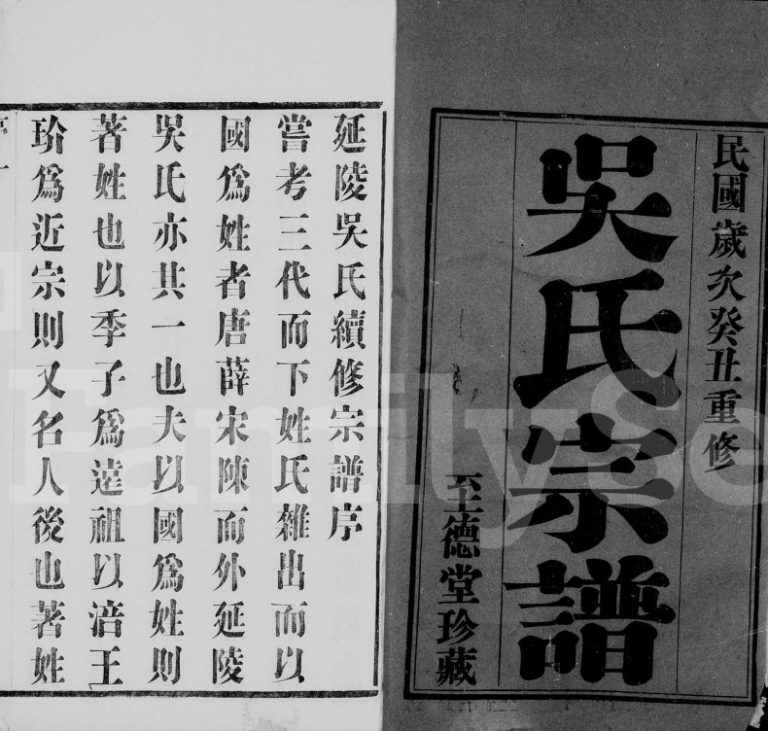 民國歲次癸丑重修
吳氏宗譜
至德堂珍藏
延陵吳氏續修宗譜序
嘗考三代而下姓氏雜出而以
國爲姓者唐薛宋陳而外延陵
吳氏亦其一也夫以國爲姓則
著姓也以季子爲遠祖以涪王
玠爲近宗則又名人後也著姓
FamilySe